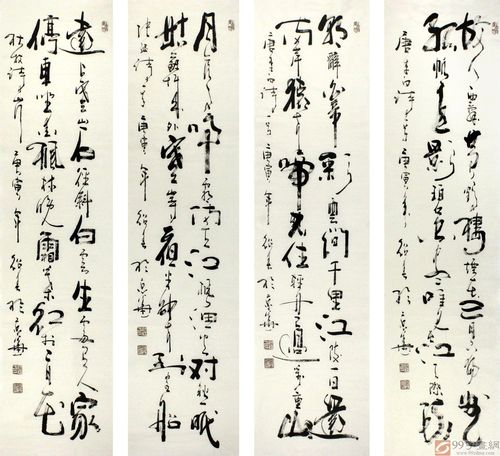 故人西辞黄鹤楼烟花三月下扬州
孤帆远影碧空尽唯见长江天际流
唐李白诗一首庚寅年
於京華
朝辞白帝彩雲间千里江陵一日還
两岸猿声啼不住轻舟已过万重山
唐李白诗一首庚寅年
於京華
月落乌啼霜满天江枫渔火对愁眠
姑苏城外寒山寺夜半钟声到客船
张继诗一首庚寅年
於京華
遠上寒山石径斜白云生处有人家
停車坐爱枫林晚霜葉红於二月花
杜牧诗山行庚寅年
於京華
99字畫網